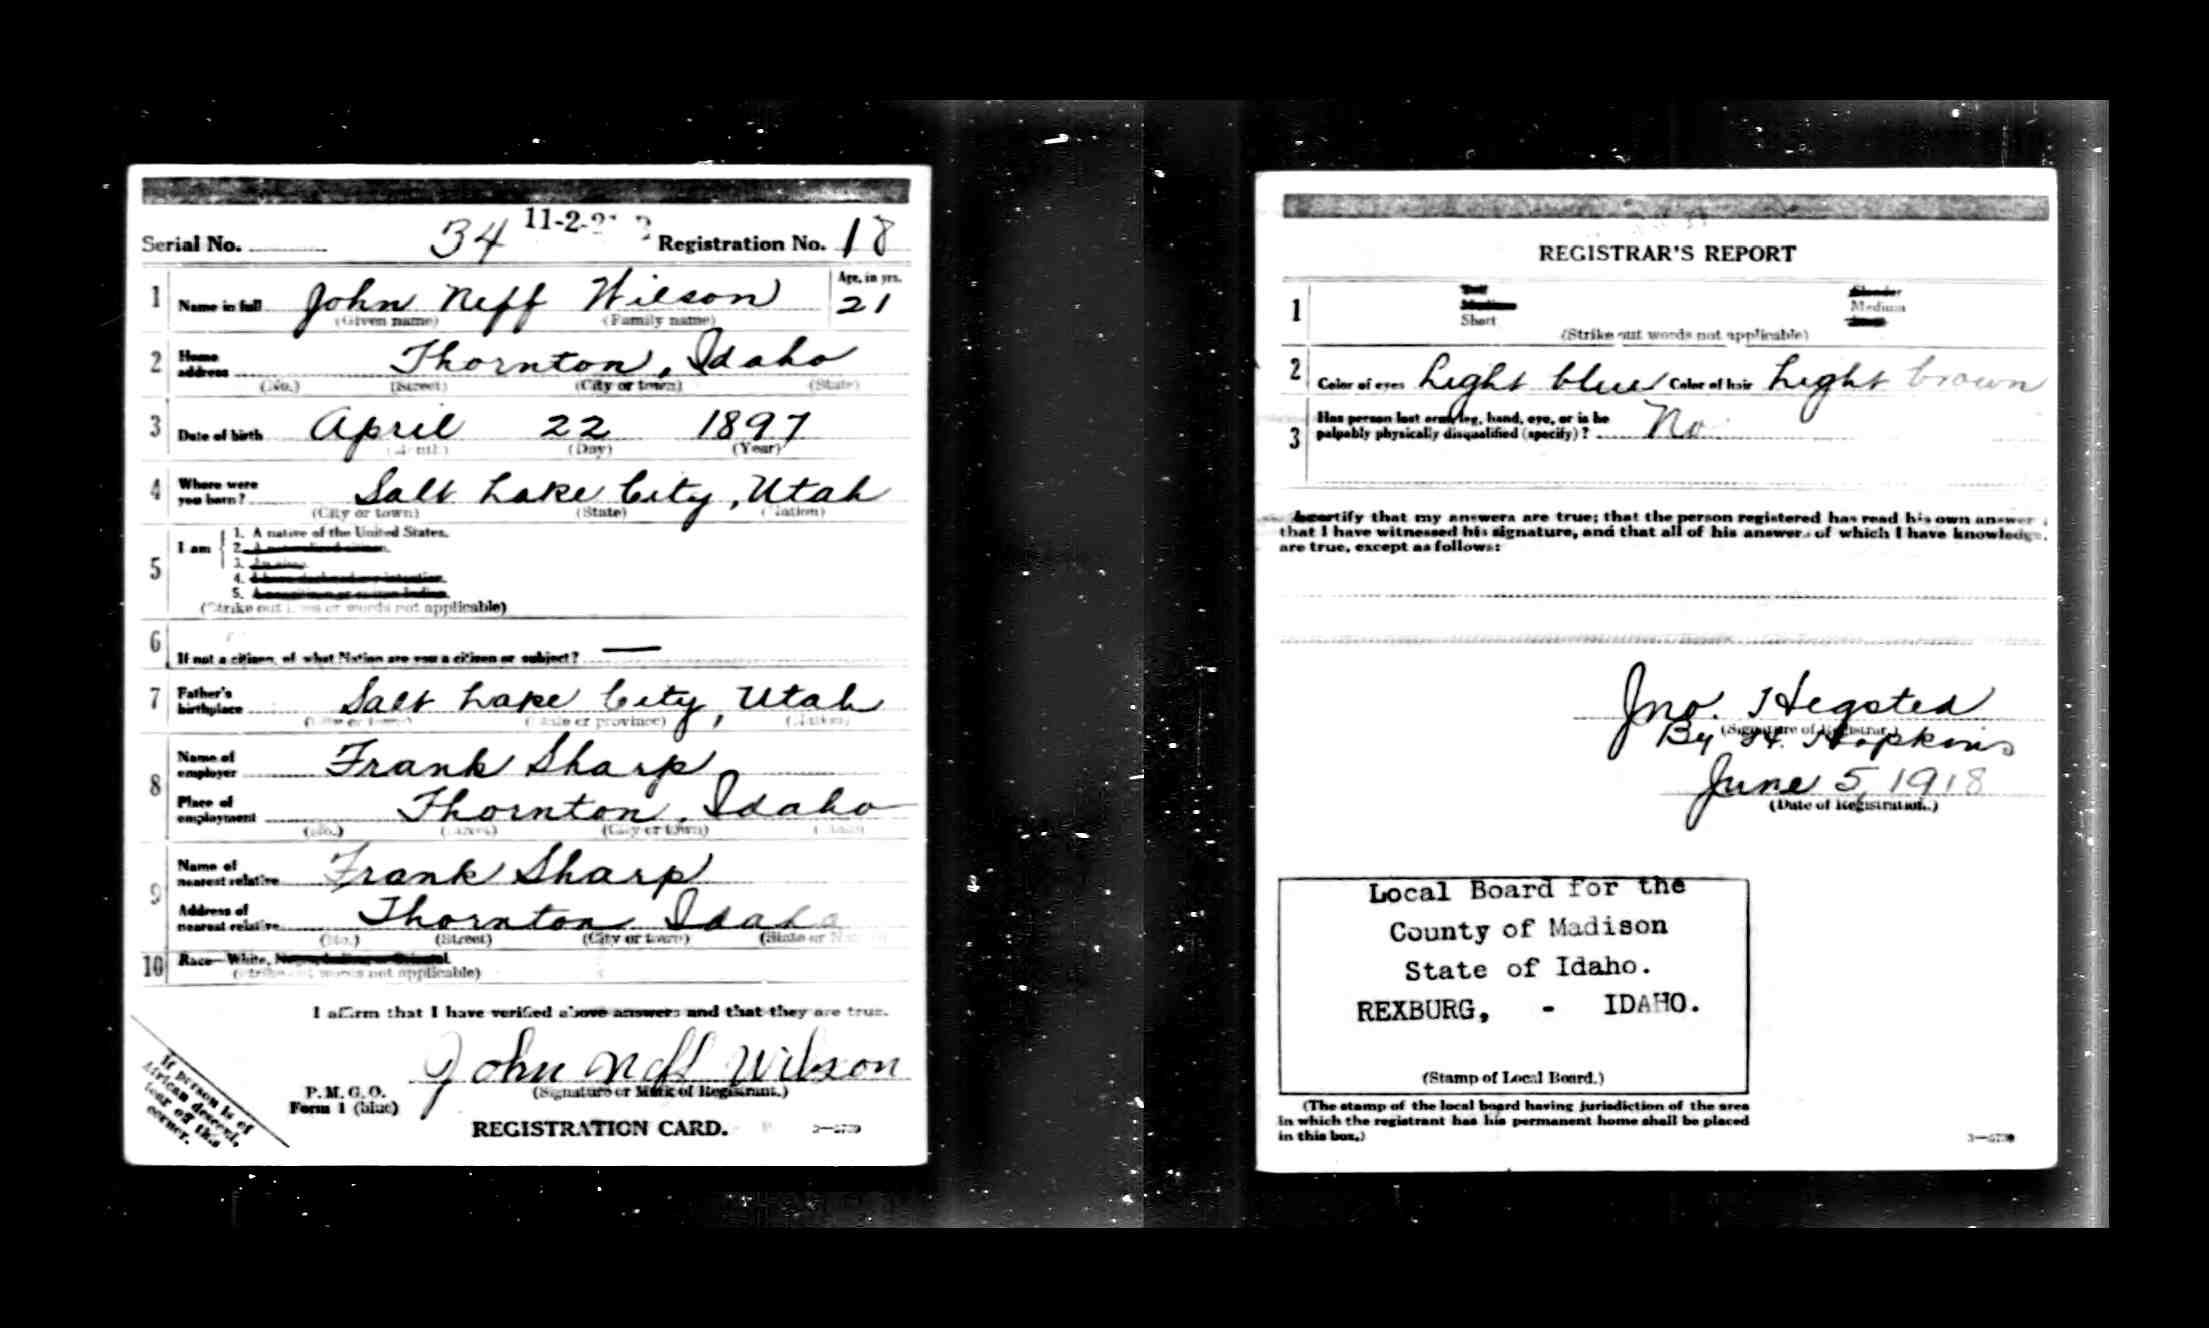 34
Serial No. Registration No. 18
1 Name in full John Neff Wilson Age, in yrs. 21
(Given name) (Family name)
2 Home address Thornton, Idaho
(No.) (Street) (City or town) (State)
3 Date of birth April 22 1897
(Day) (Year)
4 Where were you born? Salt Lake City, Utah
(City or town) (State) (Nation)
5 I am
1. A native of the United States.
2.
3.
4.
5.
(Strike out lines or words not applicable)
6 If not a citizen, of what Nation are you a citizen or subject? —
7 Father's birthplace Salt Lake City, Utah
8 Name of employer Frank Sharp
Place of employment Thornton, Idaho
(No.) (Street) (City or town)
9 Name of nearest relative Frank Sharp
Address of nearest relative Thornton Idaho
(No.) (Street) (City or town)
10 Race—White,
(Strike out words not applicable)
I affirm that I have verified above answers and that they are true.
John Neff Wilson
(Signature or Mark of Registrant.)
P. M. G. O.
Form 1 (blue)
REGISTRATION CARD.
If person is of
African descent,
tear off this
corner.
REGISTRAR'S REPORT
1 Medium
Short
(Strike out words not applicable)
2 Color of eyes Light blue Color of hair Light brown
3 Has person lost arm, leg, hand, eye, or is he
palpably physically disqualified (specify)? No
I certify that my answers are true; that the person registered has read his own answers,
that I have witnessed his signature, and that all of his answers of which I have knowledge
are true, except as follows:
Jno. Hegsted
(Signature of Registrar.)
By H. Hopkins
June 5, 1918
(Date of Registration.)
Local Board for the
County of Madison
State of Idaho.
REXBURG, - IDAHO.
(Stamp of Local Board.)
(The stamp of the local board having jurisdiction of the area
in which the registrant has his permanent home shall be placed
in this box.)